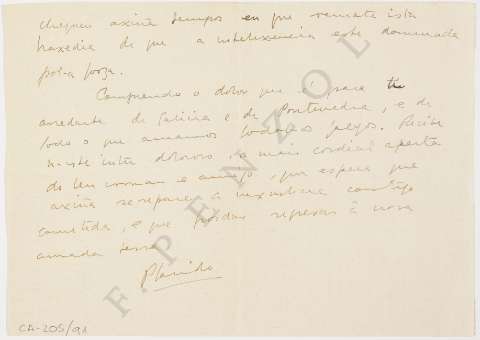 cheguen axiña tempos en que remate ista
traxedia de que a intelixencia este dominada
pol-a forza.
Comprendo o dolor que é para
arredante de Galicia e de Pontevedra, e de
todo o que amamos todolos galegos. Recibe
n-iste intre doloroso, o mais cordial aperta
do teu irman e amigo, que espera que
axiña se repare a inxusticia contigo
cometida, e que poidas regresar á nosa
amada terra
Placido
F. PENZOL
CA-205/91